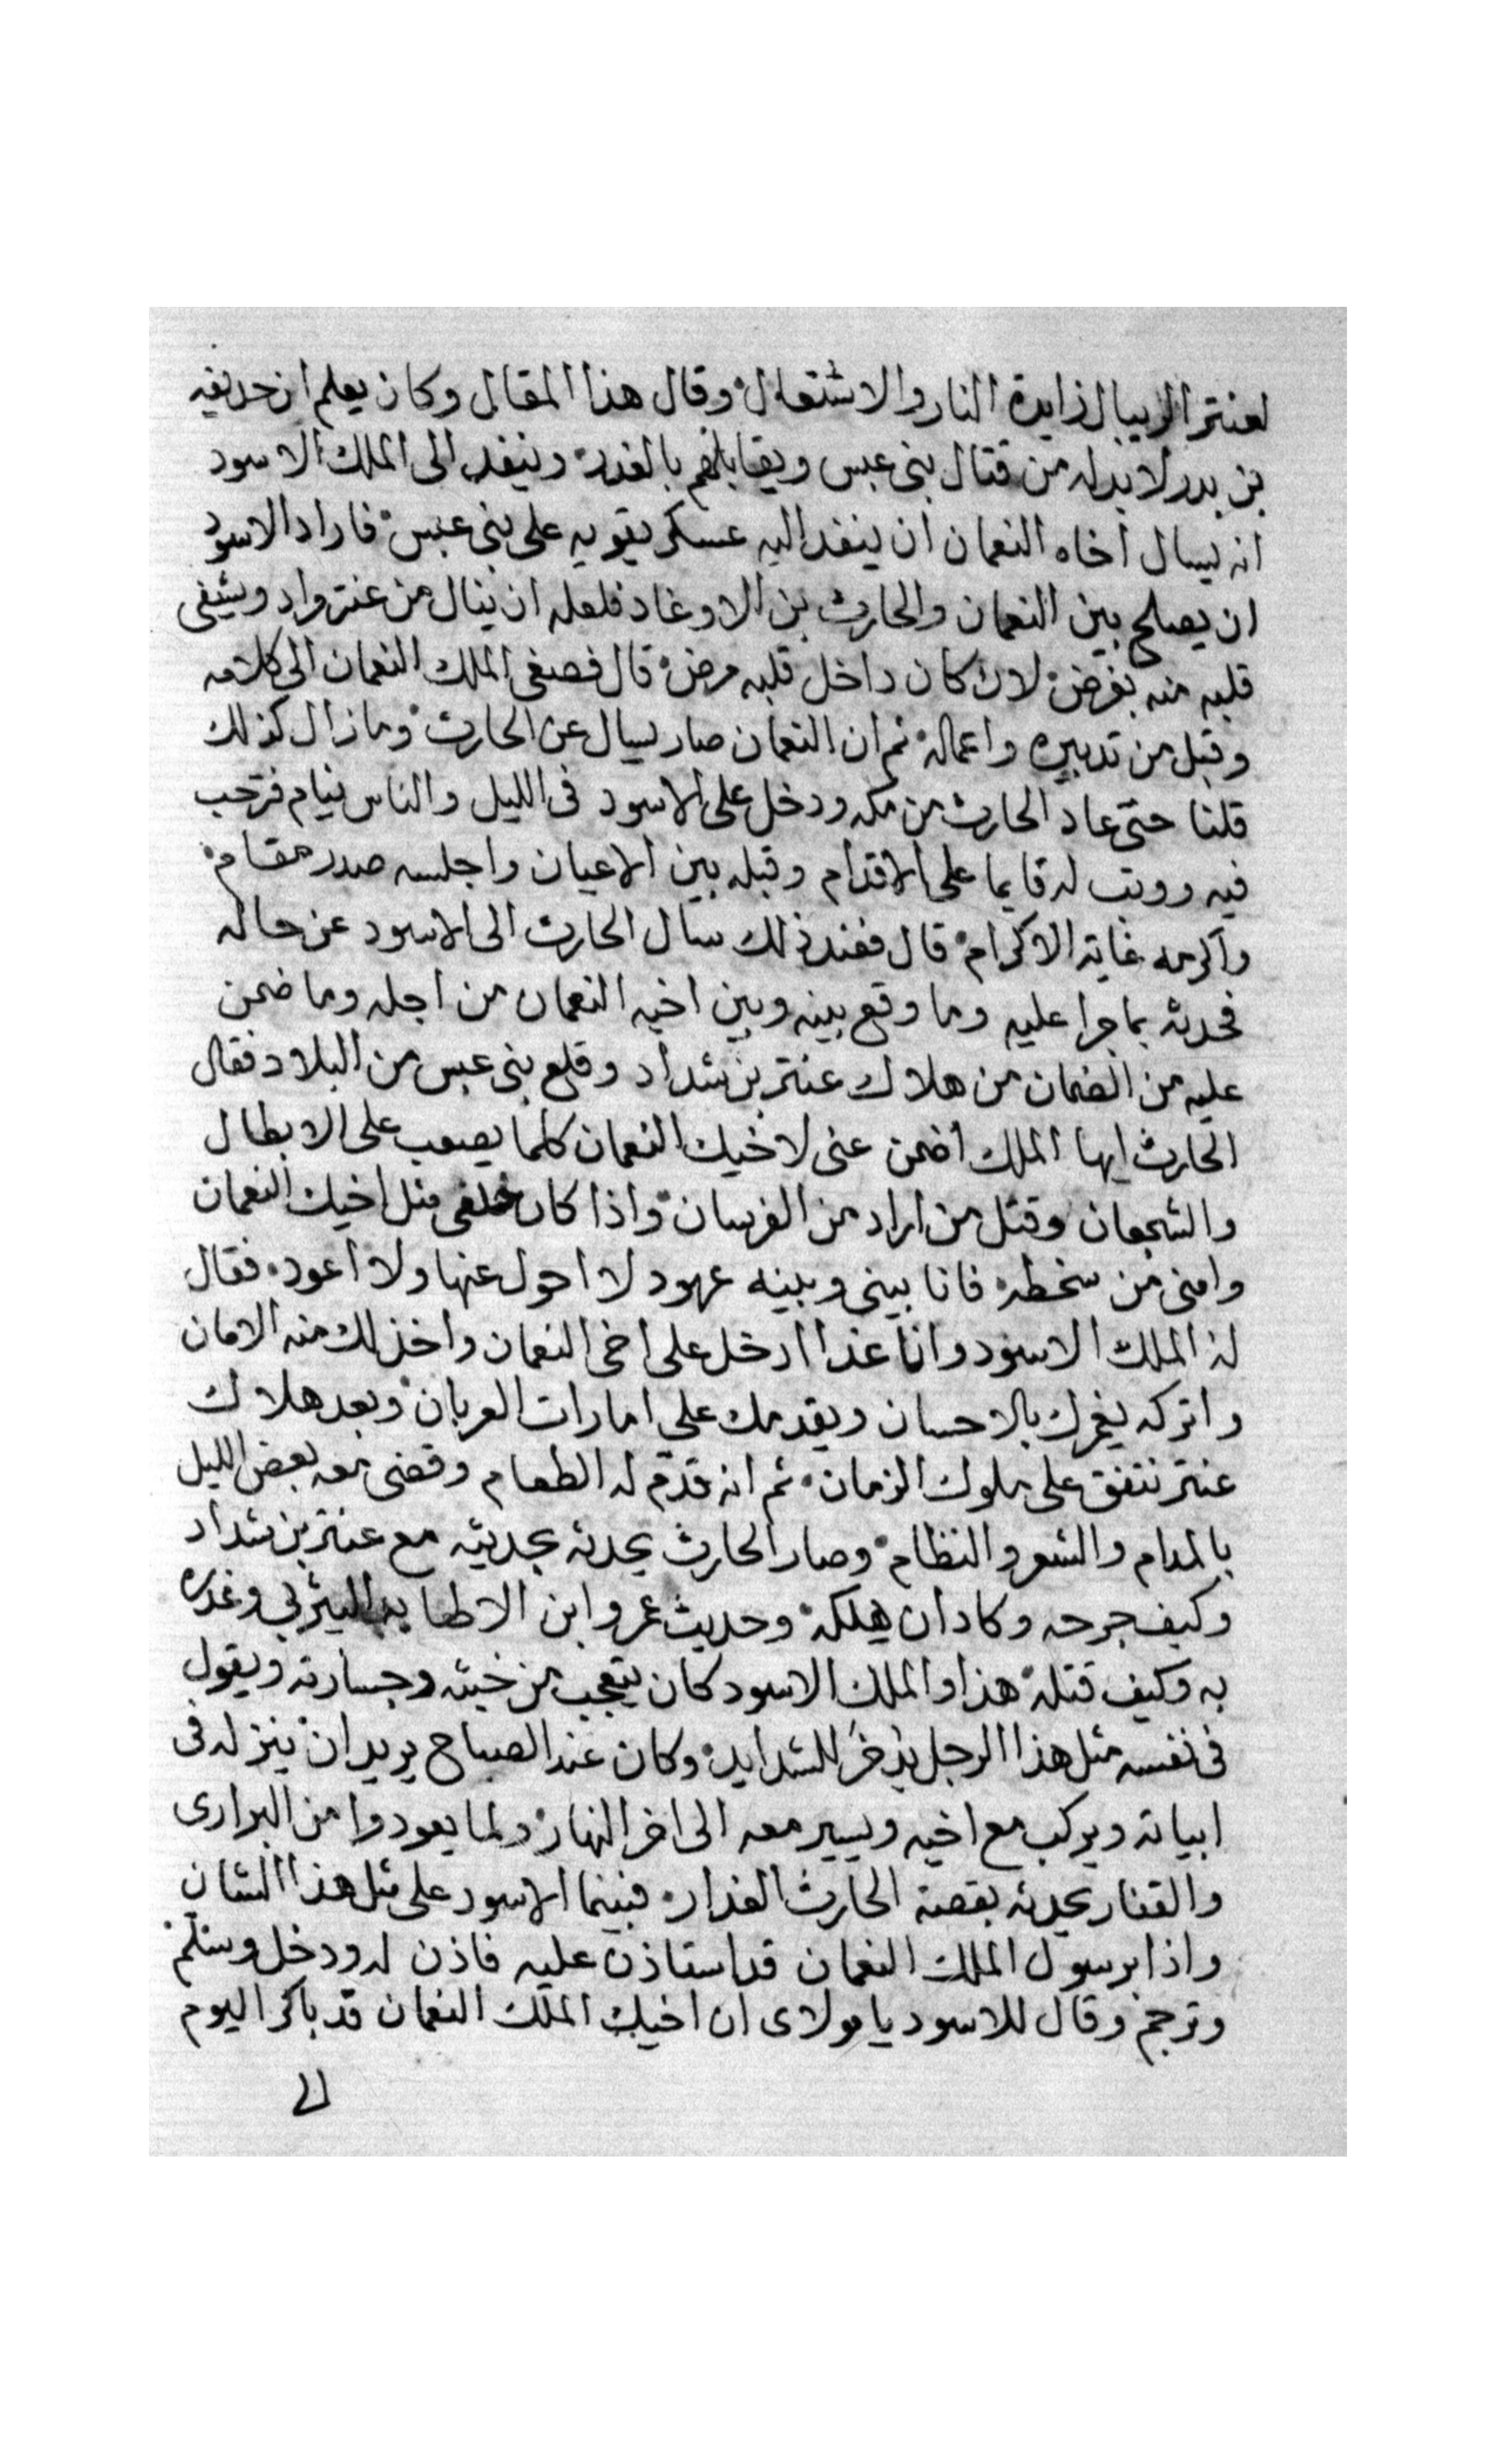 لعنتر الريبال زايدة النار والاشتعال وقال هذا المقال وكان يعلم ان حديفه
بن بدر لا بد له من قتال بنى عبس ويقابلهم بالغدر وينفد الى الملك الاسود
انه يسال اخاه النعمان ان ينفد اليه عسكر يقويه على بنى عبس فاراد الاسود
ان يصلح بين النعمان والحارث بن الاوغاد فلعله ان ينال من عنتر واد ويشفى
قلبه منه بغرض لان كان داخل قلبه مرض قال فصغى الملك النعمان الى كلامه
وقبل من تدبيره واعماله ثم ان النعمان صار يسال عن الحارث وما زال كذلك
قلنا حتى عاد الحارث من مكه ودخل على الاسود فى الليل والناس نيام فترحب
فيه ووتب له قايما على الاقدام وقبله بين الاعيان واجلسه صدر مقام
واكرمه غاية الاكرام قال فعند ذلك سال الحارث الى الاسود عن حاله
فحدثه بما جرا عليه وما وقع بينه وبين اخيه النعمان من اجله وما ضمن
عليه من الضمان من هلاك عنتر بن شداد وقلع بنى عبس من البلاد فقال
الحارث ايها الملك اضمن عنى لاخيك النعمان كلما يصعب على الابطال
والشجعان وقتل من اراد من الفرسان واذا كان خلفى مثل اخيك النعمان
وامنى من سخطه فانا بينى وبينه عهود لا احول عنها ولا اعود فقال
له الملك الاسود وانا غدا ادخل على اخى النعمان واخذ لك منه الامان
واتركه يغمرك بالاحسان ويقدمك على امارات العربان وبعد هلاك
عنتر نتفق على ملوك الزمان ثم انه قدم له الطعام وقضى معه بعض الليل
بالمدام والشعر والنظام وصار الحارث يحدثه بحديثه مع عنتر بن شداد
وكيف جرحه وكاد ان يهلكه وحديث عمرو ابن الاطنابه اليثربي وغدره
به وكيف قتله هذا والملك الاسود كان يتعجب من خبثه وجسارته ويقول
فى نفسه مثل هذا الرجل يذخر للشدايد وكان عند الصباح يريد ان ينزله فى
ابياته ويركب مع اخيه ويسير معه الى اخر النهار ولما يعودوا من البرارى
والقفار يحدثه بقصة الحارث الغدار فبينما الاسود على مثل هذا الشان
واذا برسول الملك النعمان قد استاذن عليه فاذن له ودخل وسلم
وترجم وقال للاسود يا مولاى ان اخيك الملك النعمان قد باكر اليوم